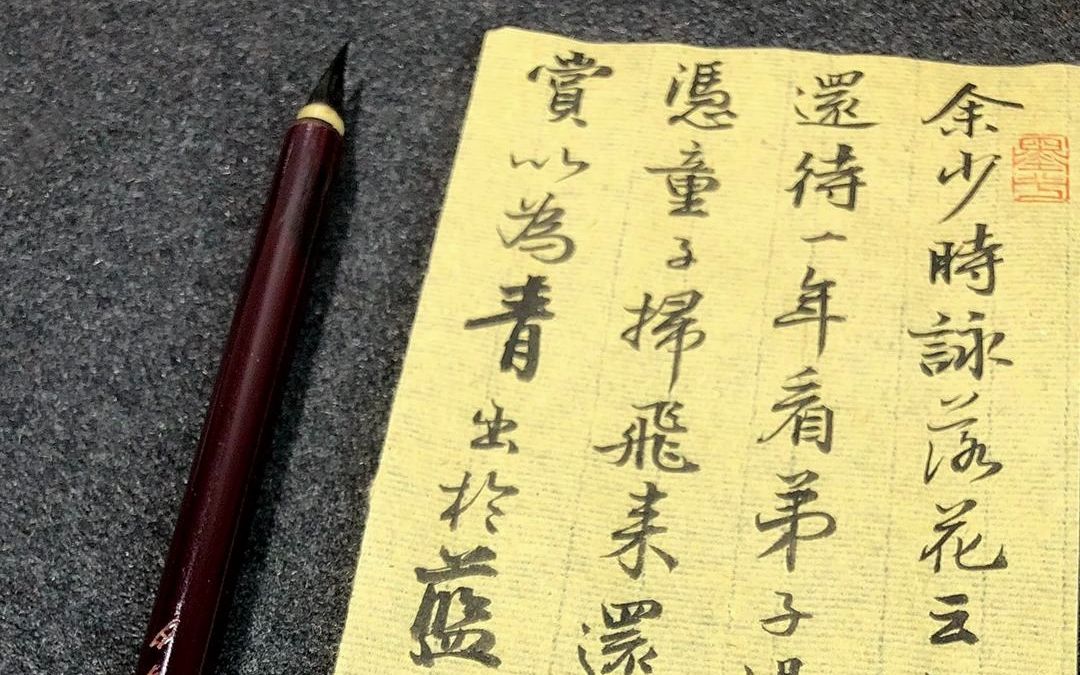 余少時詠落花云
還待一年看弟子
憑童子掃飛来還
賞以為青出於藍